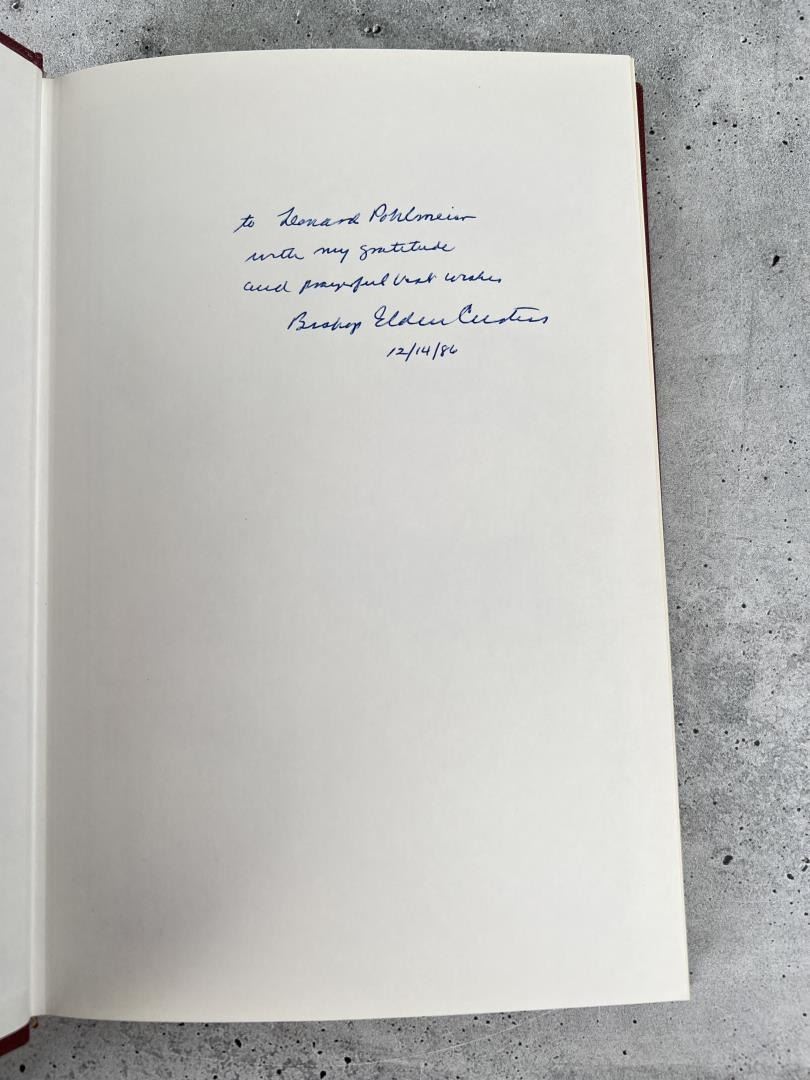 to Leonard Pohlmeier
with my gratitude
and prayerful best wishes
Bishop Elden Curtiss
12/14/86